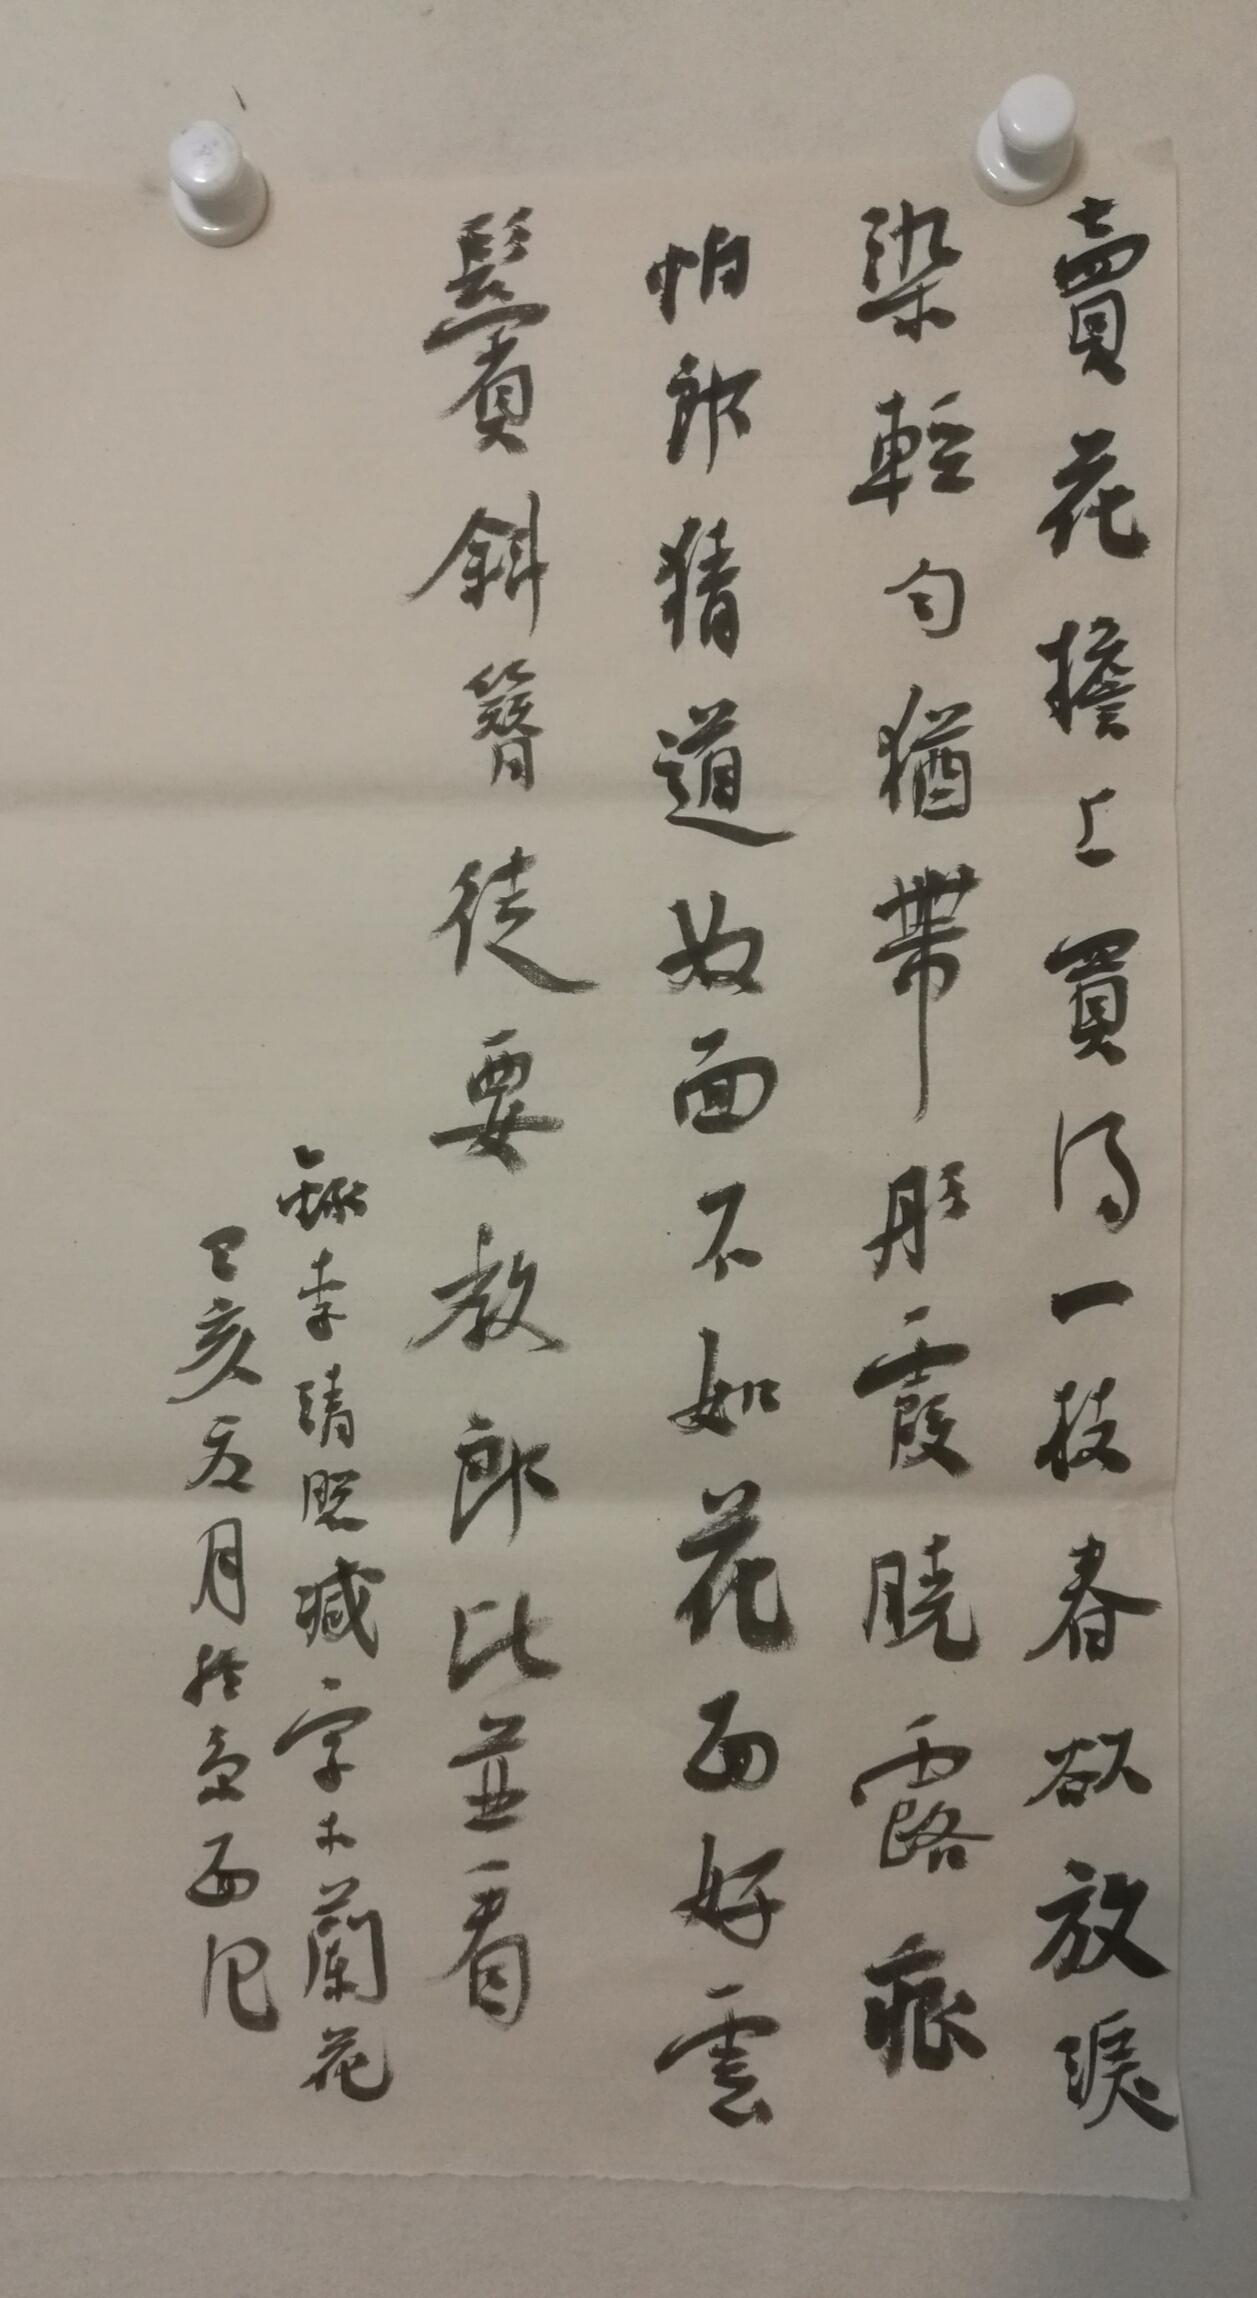 賣花擔上買得一枝春欲放淚
染輕勻猶帶彤霞曉露痕
怕郎猜道奴面不如花面好雲
鬢斜簪徒要教郎比並看
錄李清照減字木蘭花
己亥五月於京西